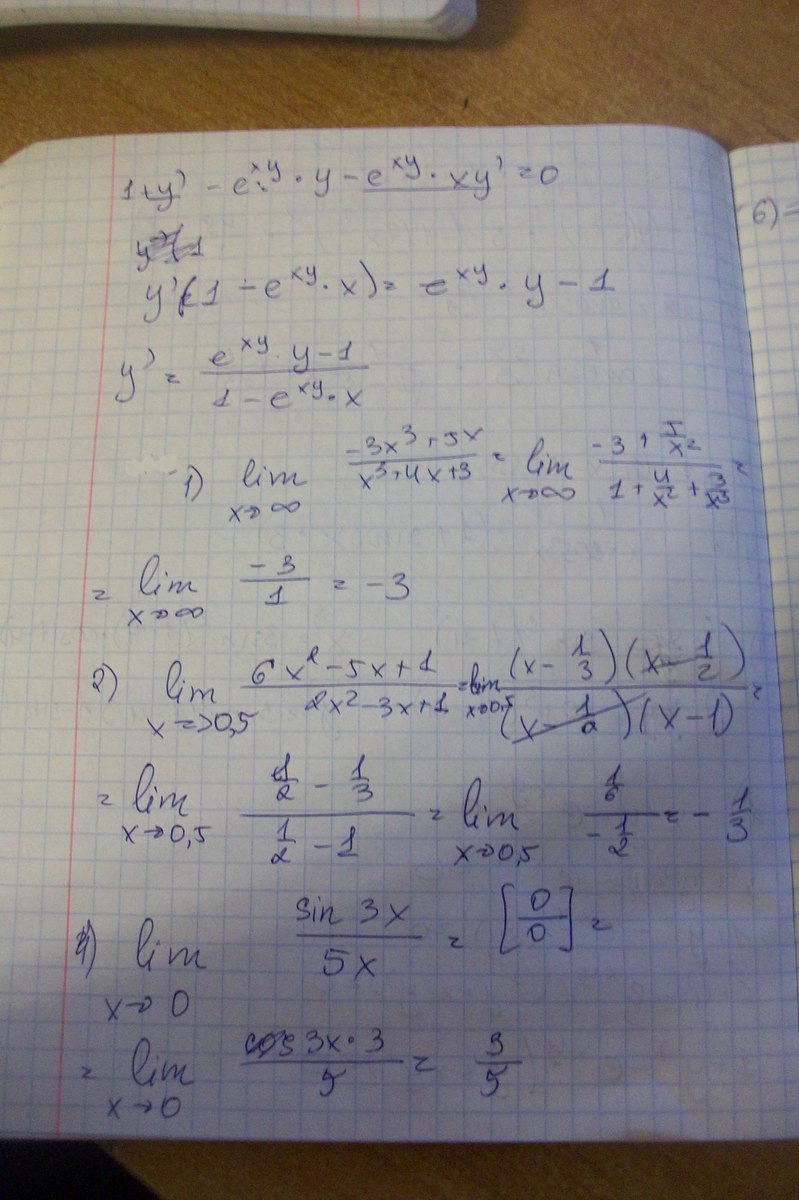 1+y' - e^{xy} · y - e^{xy} · xy' = 0
y'(1 - e^{xy} · x) = e^{xy} · y - 1
y' = \frac{e^{xy} · y - 1}{1 - e^{xy} · x}
1) lim_{x→∞} \frac{-3x^3+5x}{x^3+4x+3} = lim_{x→∞} \frac{-3+\frac{5}{x^2}}{1+\frac{4}{x^2}+\frac{3}{x^3}} =
= lim_{x→∞} \frac{-3}{1} = -3
2) lim_{x=>0,5} \frac{6x^2-5x+1}{2x^2-3x+1} = lim_{x→0,5} \frac{(x-\frac{1}{3})(x-\frac{1}{2})}{(x-\frac{1}{2})(x-1)} =
= lim_{x→0,5} \frac{\frac{1}{2}-\frac{1}{3}}{\frac{1}{2}-1} = lim_{x→0,5} \frac{\frac{1}{6}}{-\frac{1}{2}} = -\frac{1}{3}
4) lim_{x→0} \frac{sin 3x}{5x} = [\frac{0}{0}] =
= lim_{x→0} \frac{cos 3x · 3}{5} = \frac{3}{5}
6) =